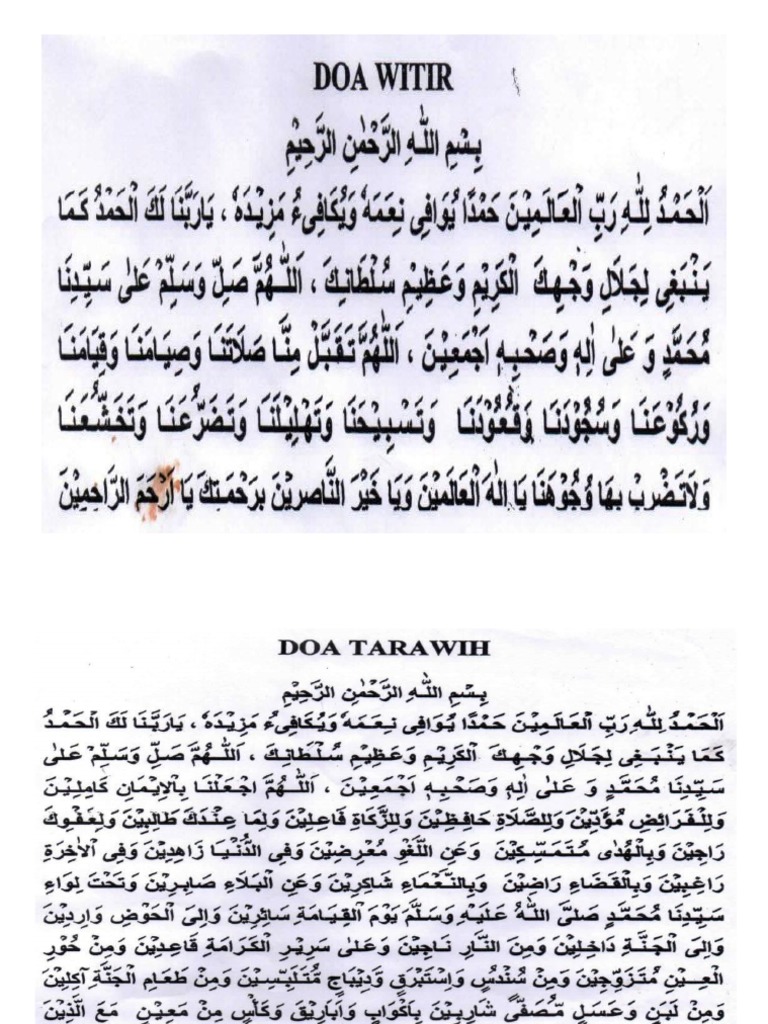 DOA WITIR
بِسْمِ اللّٰهِ الرَّحْمٰنِ الرَّحِيْمِ
اَلْحَمْدُ لِلّٰهِ رَبِّ الْعَالَمِيْنَ حَمْدًا يُوَافِى نِعَمَهٗ وَيُكَافِىءُ مَزِيْدَهٗ ، يَارَبَّنَا لَكَ الْحَمْدُ كَمَا
يَنْبَغِى لِجَلَالِ وَجْهِكَ الْكَرِيْمِ وَعَظِيْمِ سُلْطَانِكَ ، اَللّٰهُمَّ صَلِّ وَسَلِّمْ عَلٰى سَيِّدِنَا
مُحَمَّدٍ وَ عَلٰى اٰلِهٖ وَصَحْبِهٖ اَجْمَعِيْنَ ، اَللّٰهُمَّ تَقَبَّلْ مِنَّا صَلَاتَنَا وَصِيَامَنَا وَقِيَامَنَا
وَرُكُوْعَنَا وَسُجُوْدَنَا وَقُعُوْدَنَا وَتَسْبِيْحَنَا وَتَهْلِيْلَنَا وَتَضَرُّعَنَا وَتَخَشُّعَنَا
وَلَاتَضْرِبْ بِهَا وُجُوْهَنَا يَا اِلٰهَ الْعَالَمِيْنَ وَيَا خَيْرَ النَّاصِرِيْنَ بِرَحْمَتِكَ يَا اَرْحَمَ الرَّاحِمِيْنَ
DOA TARAWIH
بِسْمِ اللّٰهِ الرَّحْمٰنِ الرَّحِيْمِ
اَلْحَمْدُ لِلّٰهِ رَبِّ الْعَالَمِيْنَ حَمْدًا يُوَافِى نِعَمَهٗ وَيُكَافِىءُ مَزِيْدَهٗ ، يَارَبَّنَا لَكَ الْحَمْدُ
كَمَا يَنْبَغِى لِجَلَالِ وَجْهِكَ الْكَرِيْمِ وَعَظِيْمِ سُلْطَانِكَ ، اَللّٰهُمَّ صَلِّ وَسَلِّمْ عَلٰى
سَيِّدِنَا مُحَمَّدٍ وَ عَلٰى اٰلِهٖ وَصَحْبِهٖ اَجْمَعِيْنَ ، اَللّٰهُمَّ اجْعَلْنَا بِالْاِيْمَانِ كَامِلِيْنَ
وَلِلْفَرَائِضِ مُؤَدِّيْنَ وَلِلصَّلَاةِ حَافِظِيْنَ وَلِلزَّكَاةِ فَاعِلِيْنَ وَلِمَا عِنْدَكَ طَالِبِيْنَ وَلِعَفْوِكَ
رَاجِيْنَ وَبِالْهُدٰى مُتَمَسِّكِيْنَ وَعَنِ اللَّغْوِ مُعْرِضِيْنَ وَفِى الدُّنْيَا زَاهِدِيْنَ وَفِى الْاٰخِرَةِ
رَاغِبِيْنَ وَبِالْقَضَاءِ رَاضِيْنَ وَبِالنَّعْمَاءِ شَاكِرِيْنَ وَعَنِ الْبَلَاءِ صَابِرِيْنَ وَتَحْتَ لِوَاءِ
سَيِّدِنَا مُحَمَّدٍ صَلَّى اللّٰهُ عَلَيْهِ وَسَلَّمَ يَوْمَ الْقِيَامَةِ سَائِرِيْنَ وَاِلَى الْحَوْضِ وَارِدِيْنَ
وَاِلَى الْجَنَّةِ دَاخِلِيْنَ وَمِنَ النَّارِ نَاجِيْنَ وَعَلٰى سَرِيْرِ الْكَرَامَةِ قَاعِدِيْنَ وَمِنْ حُوْرِ
الْعِيْنِ مُتَزَوِّجِيْنَ وَمِنْ سُنْدُسٍ وَاِسْتَبْرَقٍ وَدِيْبَاجٍ مُتَلَبِّسِيْنَ وَمِنْ طَعَامِ الْجَنَّةِ اٰكِلِيْنَ
وَمِنْ لَبَنٍ وَعَسَلٍ مُصَفًّى شَارِبِيْنَ بِاَكْوَابٍ وَاَبَارِيْقَ وَكَأْسٍ مِنْ مَعِيْنٍ مَعَ الَّذِيْنَ